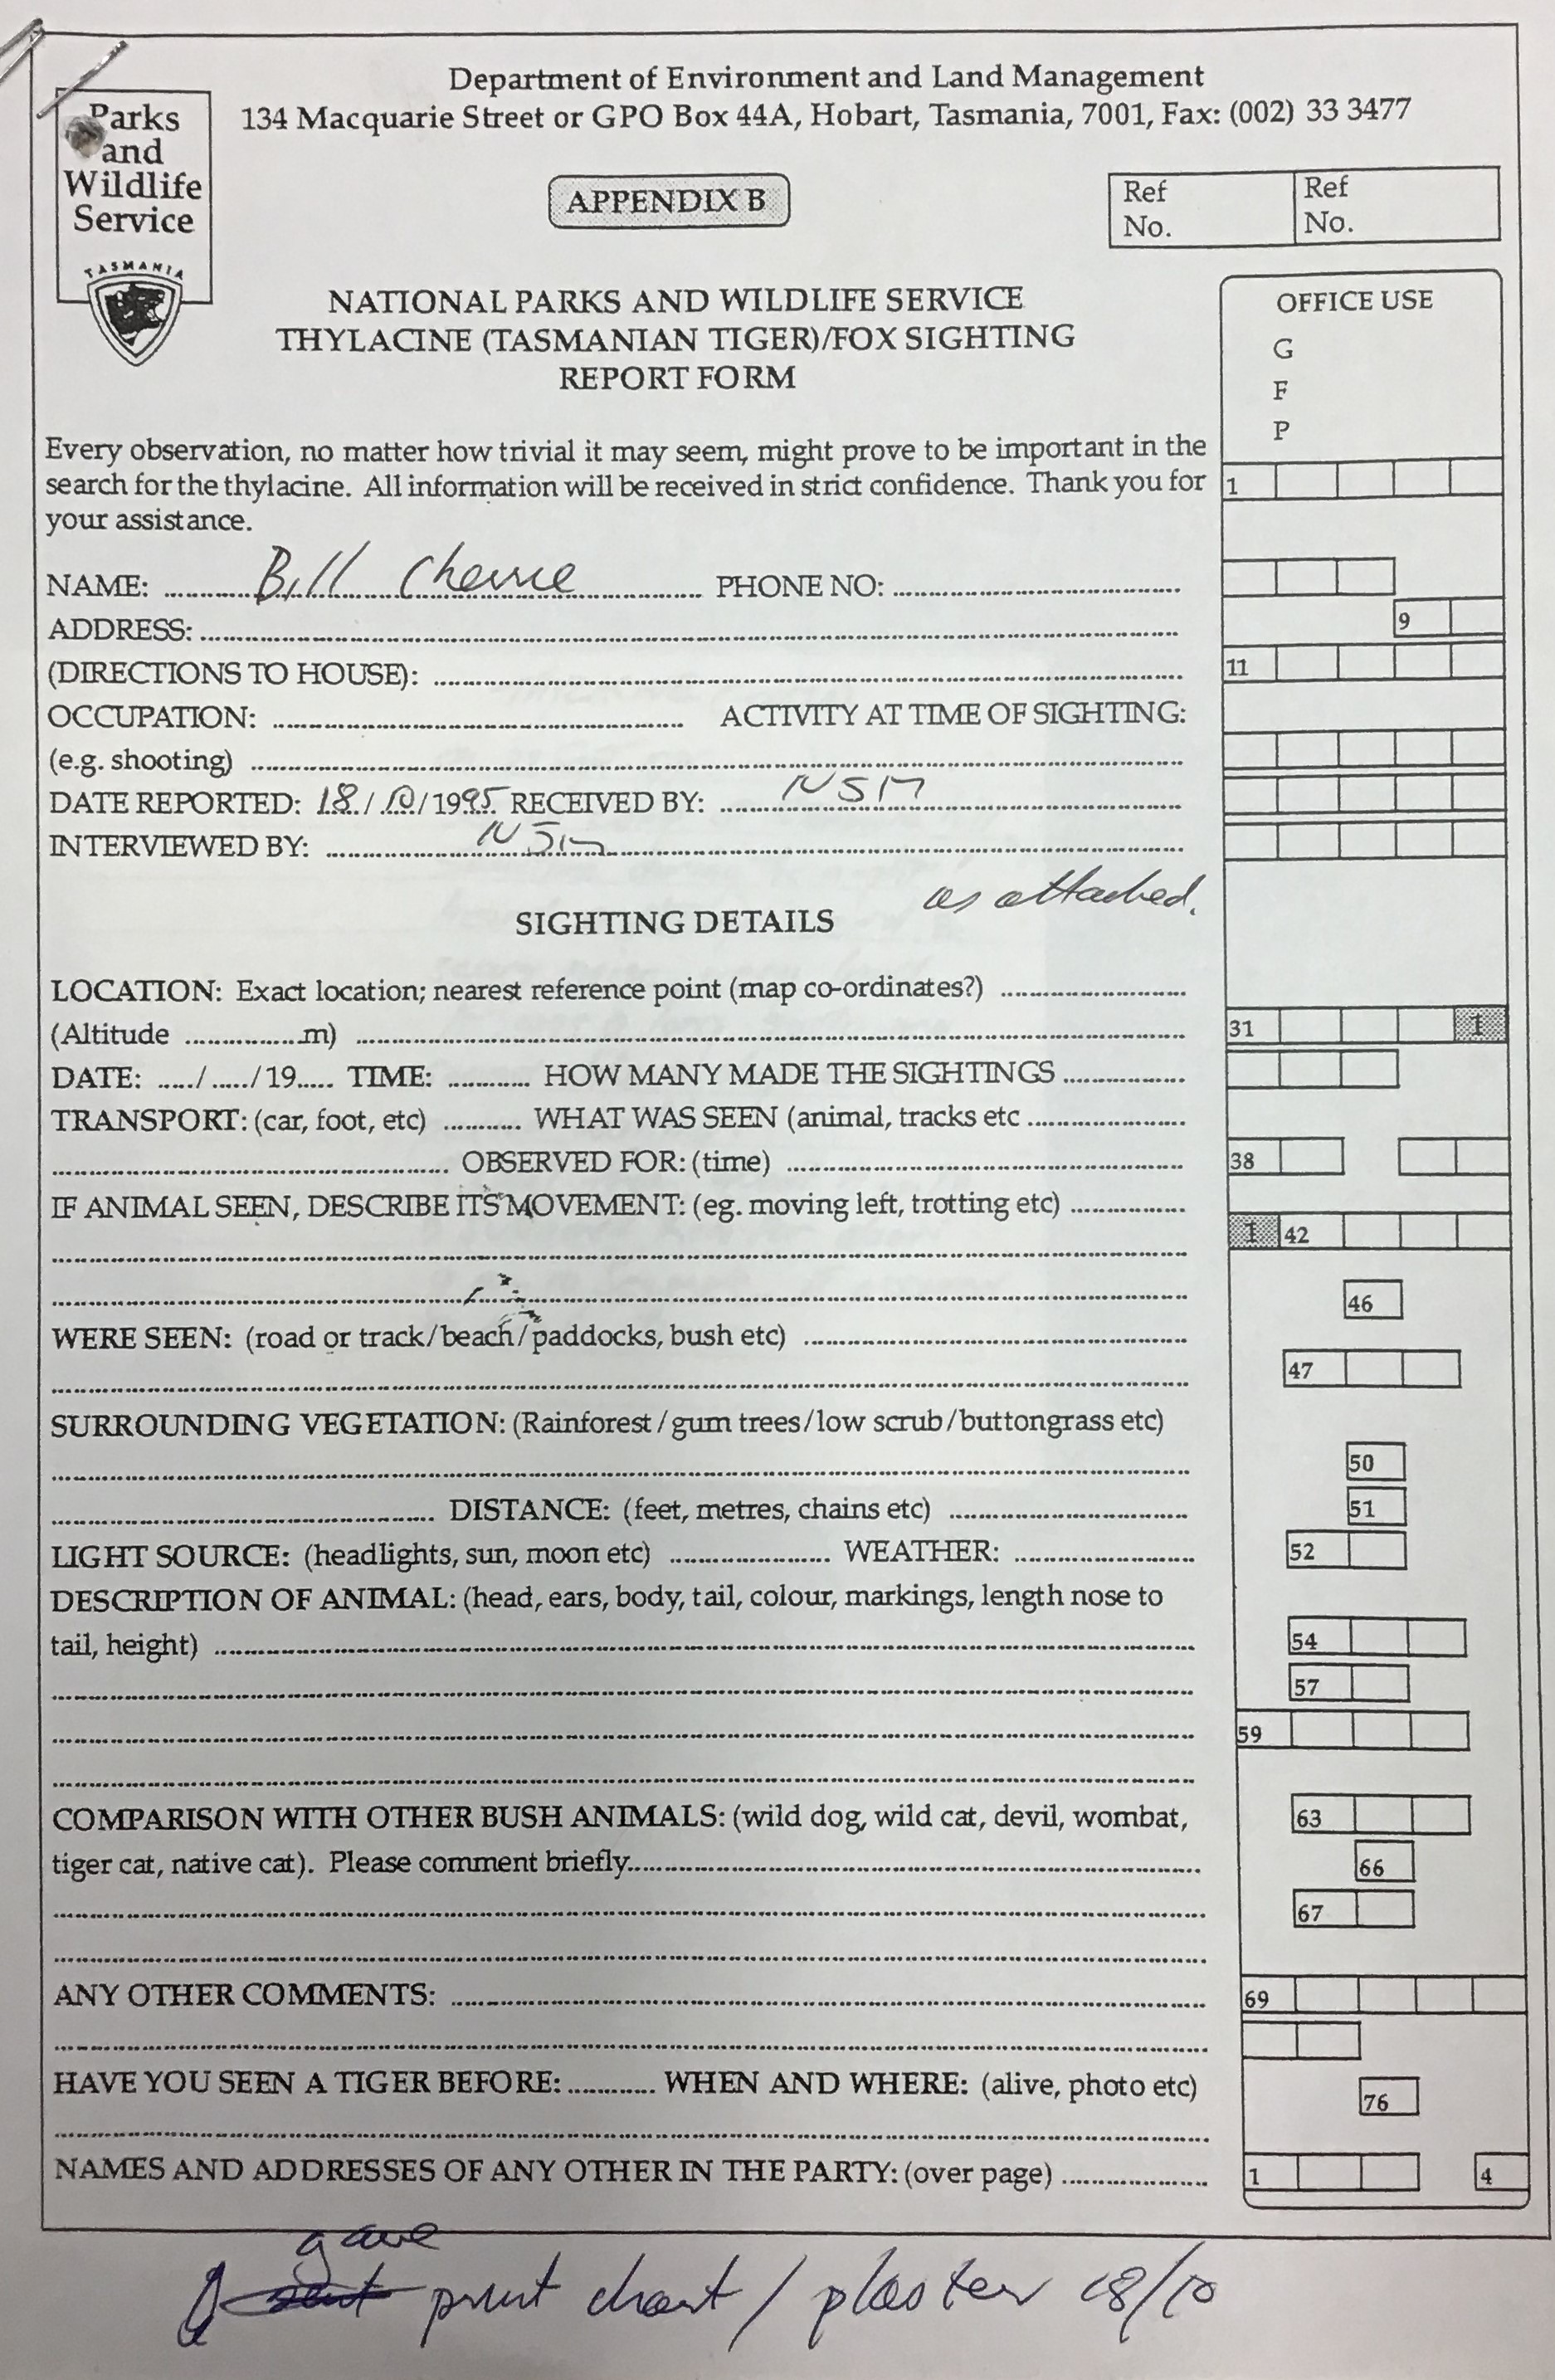 Department of Environment and Land Management
134 Macquarie Street or GPO Box 44A, Hobart, Tasmania, 7001, Fax: (002) 33 3477
Parks
and
Wildlife
Service
TASMANIA
APPENDIX B
Ref
No.
Ref
No.
NATIONAL PARKS AND WILDLIFE SERVICE
THYLACINE (TASMANIAN TIGER)/FOX SIGHTING
REPORT FORM
OFFICE USE
G
F
P
Every observation, no matter how trivial it may seem, might prove to be important in the
search for the thylacine. All information will be received in strict confidence. Thank you for
your assistance.
1
NAME: Bill PHONE NO:
ADDRESS:
9
(DIRECTIONS TO HOUSE):
11
OCCUPATION: ACTIVITY AT TIME OF SIGHTING:
(e.g. shooting)
DATE REPORTED: 18/10/1995 RECEIVED BY: NSM
INTERVIEWED BY: NSM
as attached.
SIGHTING DETAILS
LOCATION: Exact location; nearest reference point (map co-ordinates?)
(Altitude m)
31 1
DATE: / /19 TIME: HOW MANY MADE THE SIGHTINGS
TRANSPORT: (car, foot, etc) WHAT WAS SEEN (animal, tracks etc
OBSERVED FOR: (time)
38
IF ANIMAL SEEN, DESCRIBE ITS MOVEMENT: (eg. moving left, trotting etc)
1 42
46
WERE SEEN: (road or track/beach/paddocks, bush etc)
47
SURROUNDING VEGETATION: (Rainforest/gum trees/low scrub/buttongrass etc)
50
DISTANCE: (feet, metres, chains etc)
51
LIGHT SOURCE: (headlights, sun, moon etc) WEATHER:
52
DESCRIPTION OF ANIMAL: (head, ears, body, tail, colour, markings, length nose to
tail, height)
54
57
59
COMPARISON WITH OTHER BUSH ANIMALS: (wild dog, wild cat, devil, wombat,
63
tiger cat, native cat). Please comment briefly
66
67
ANY OTHER COMMENTS:
69
HAVE YOU SEEN A TIGER BEFORE: WHEN AND WHERE: (alive, photo etc)
76
NAMES AND ADDRESSES OF ANY OTHER IN THE PARTY: (over page)
1 4
gave
sent print chart / plaster 18/10